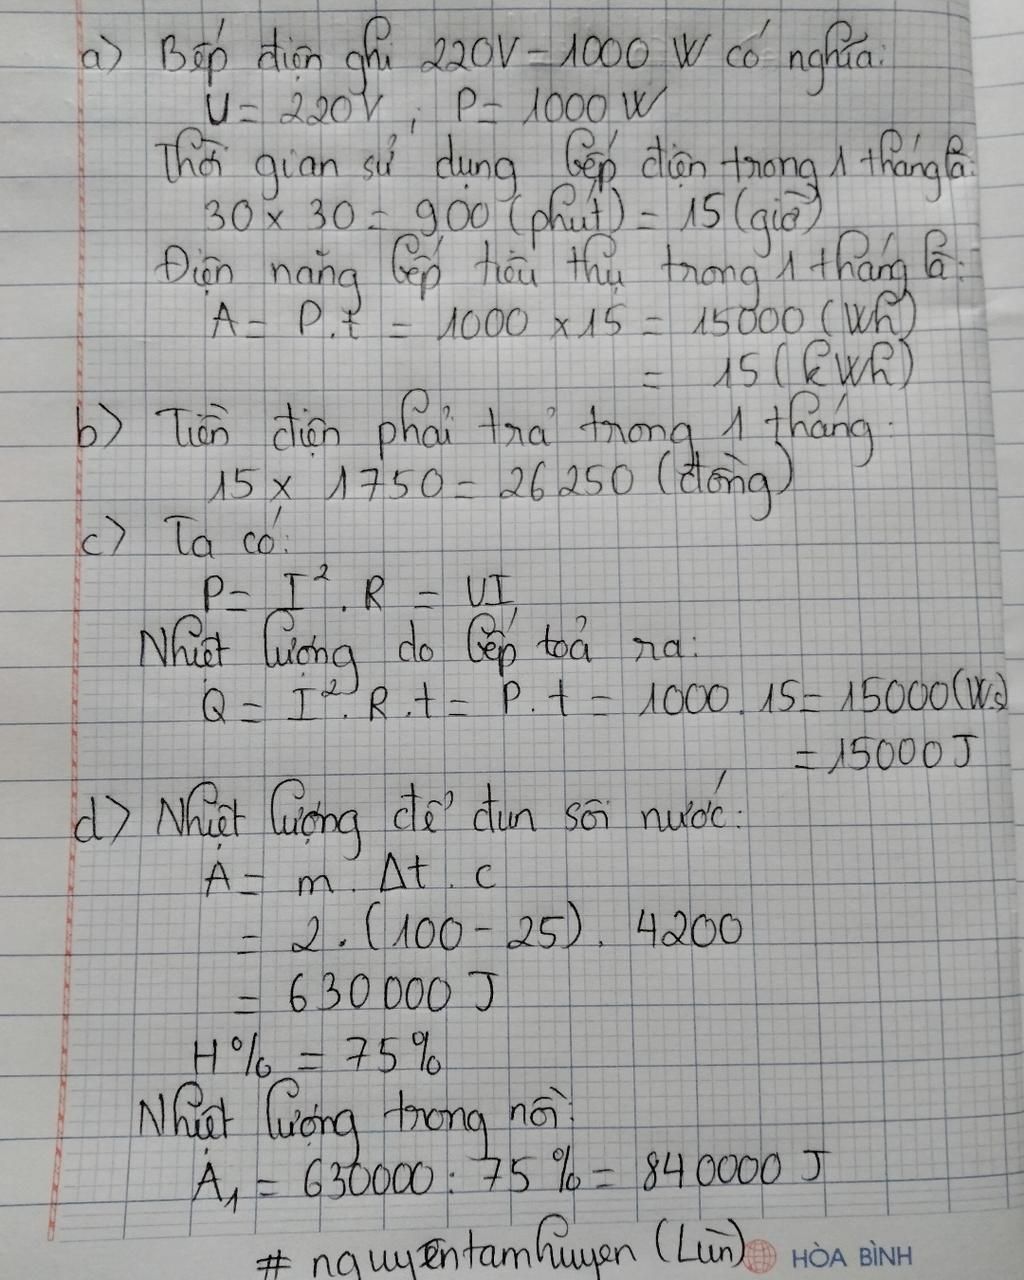 a) Bếp điện ghi 220V - 1000 W có nghĩa:
U = 220V ; P = 1000 W
Thời gian sử dụng bếp điện trong 1 tháng là:
30 x 30 = 900 (phút) = 15 (giờ)
Điện năng bếp tiêu thụ trong 1 tháng là:
A = P.t = 1000 x 15 = 15000 (Wh)
= 15 (kWh)
b) Tiền điện phải trả trong 1 tháng:
15 x 1750 = 26 250 (đồng)
c) Ta có:
P = I². R = UI
Nhiệt lượng do bếp toả ra:
Q = I². R .t = P. t = 1000 . 15 = 15000 (Ws)
= 15000 J
d) Nhiệt lượng để đun sôi nước:
A = m . Δt . c
= 2 . (100 - 25) . 4200
= 630 000 J
H% = 75%
Nhiệt lượng trong nồi:
A₁ = 630000 : 75 % = 840000 J
# nguyentamhuyen (Lùn)
HÒA BÌNH